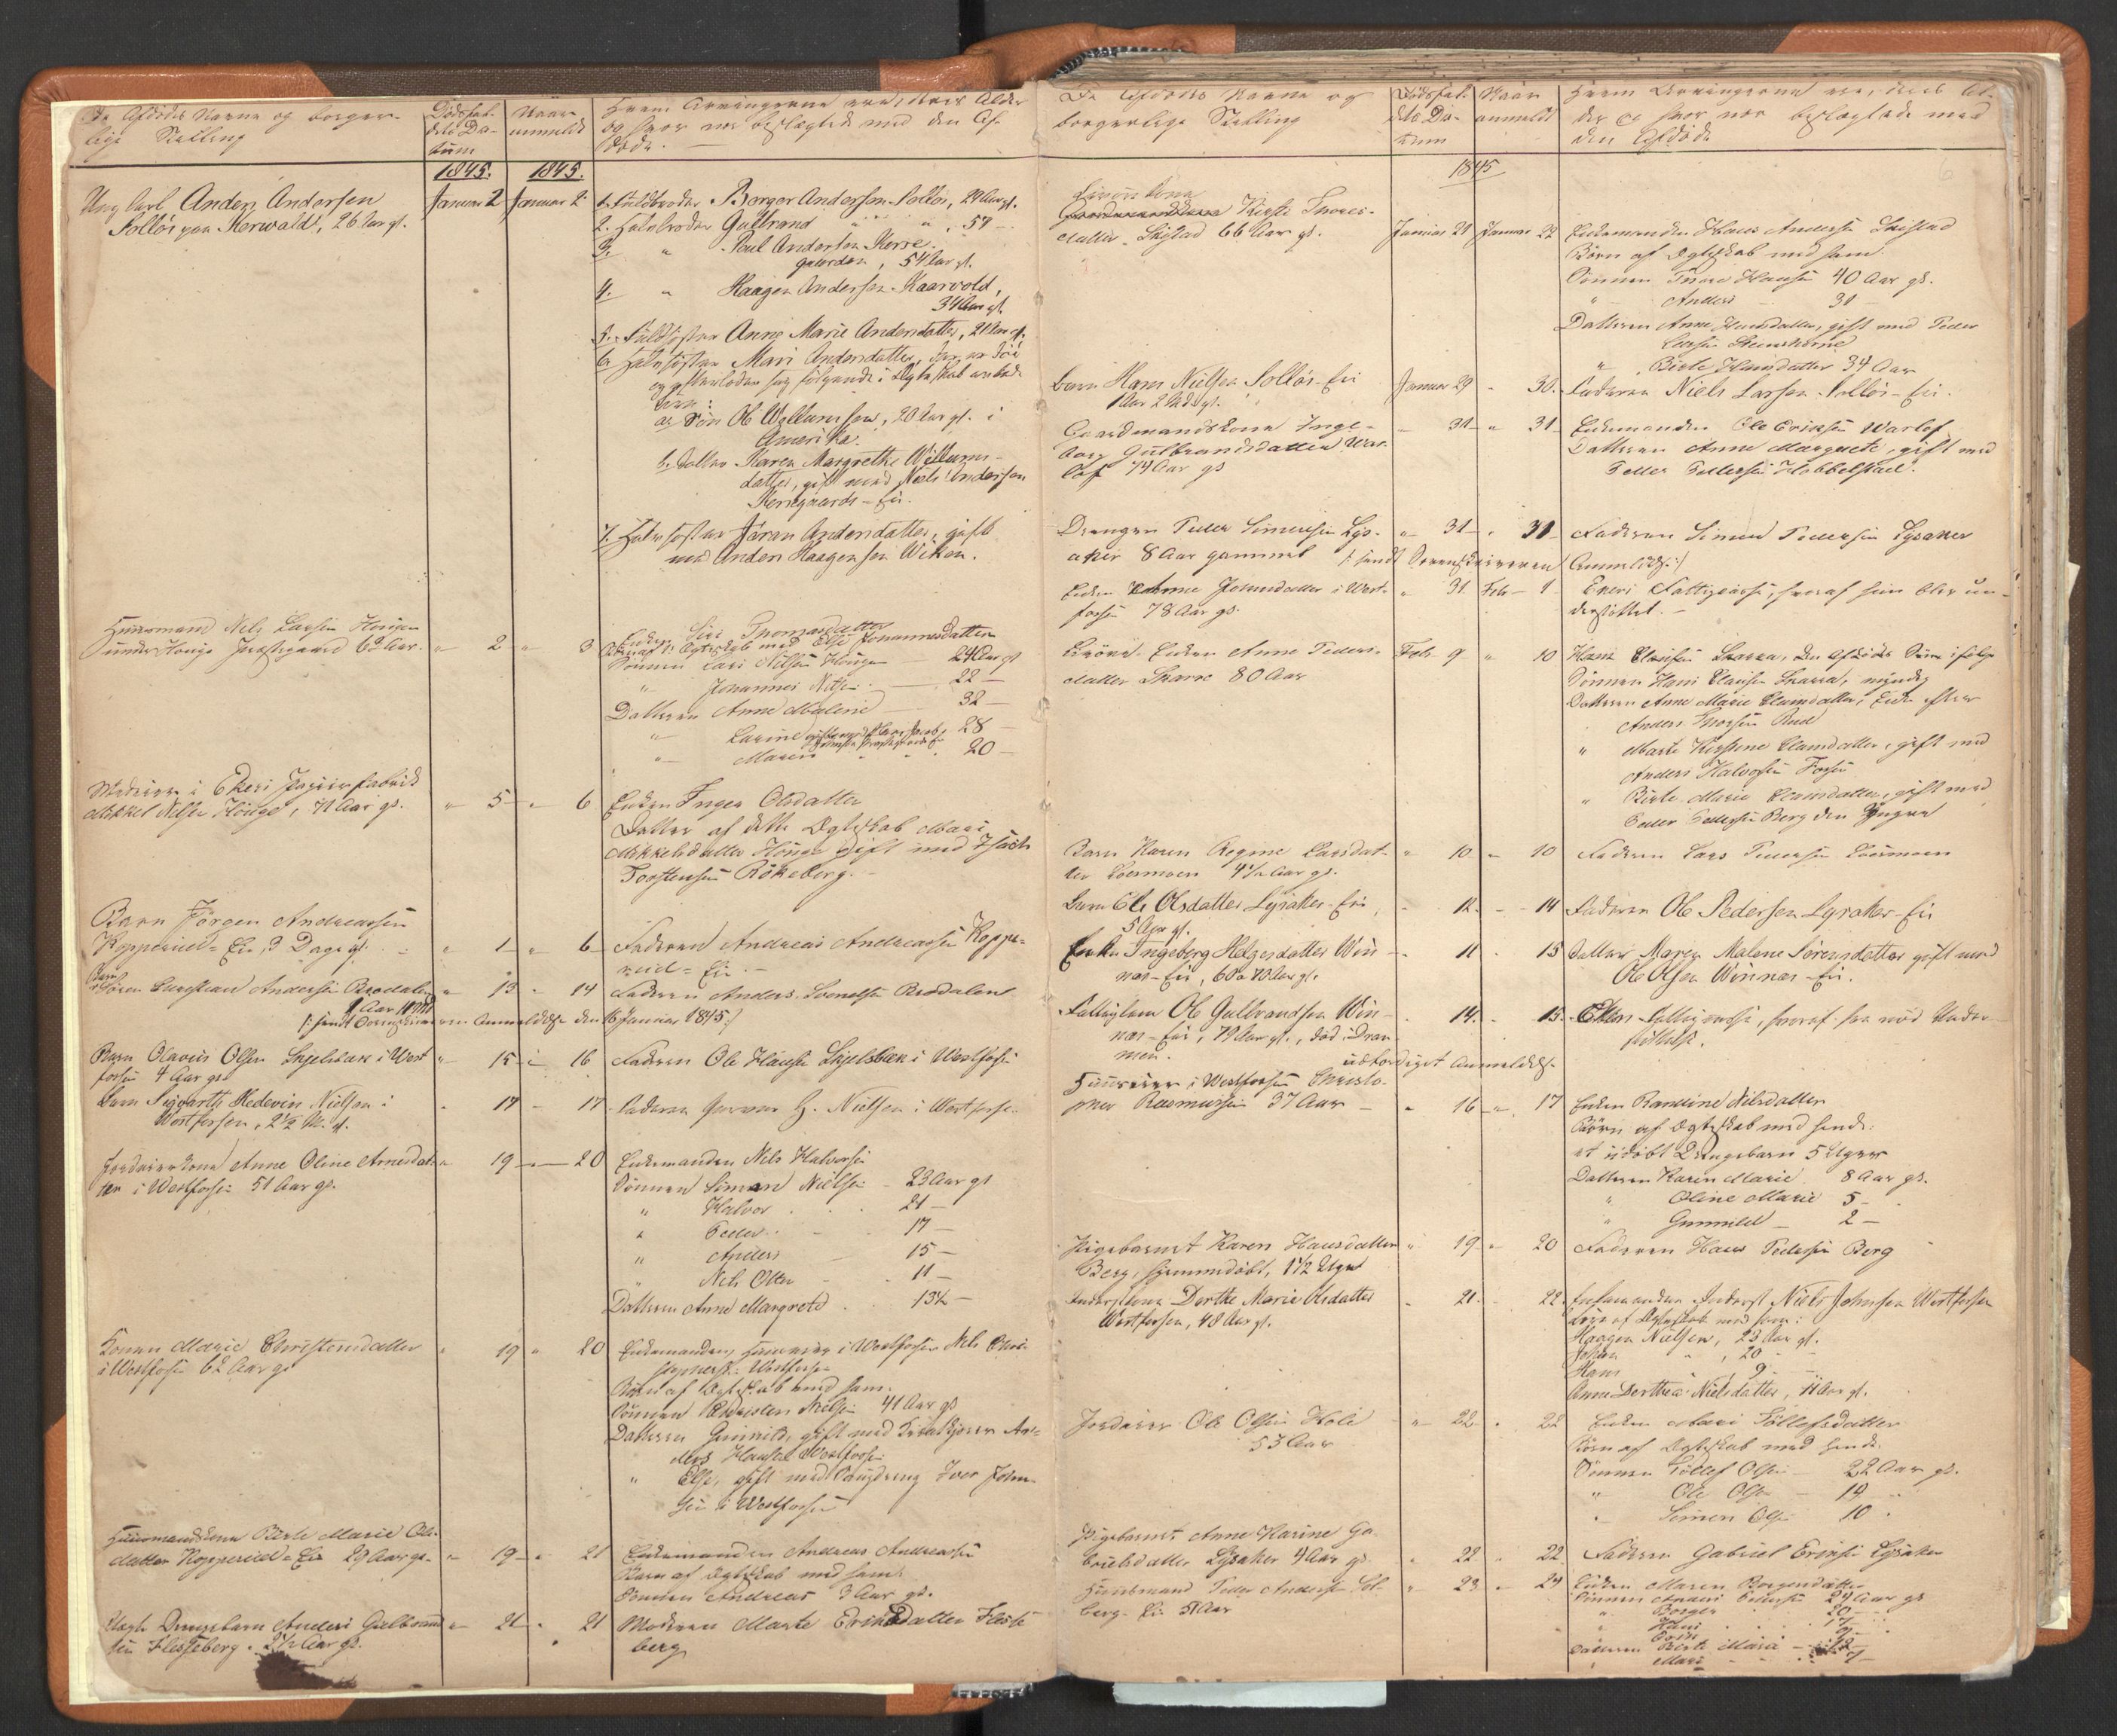 De Afdødes Navne og borger-
lige Stilling
Dødsfal-
dets Da-
tum
Naar
anmeldt
Hvem Arvingerne ere, deres Alder
og hvor nær beslægtede med den Af-
døde.
1845.
1845.
Ung karl Anders Andersen
Solløs paa Kerwald, 26 Aar gl.
Januar 2
Januar 2
1. Fuldbroder Borger Andersen Solløs, 29 Aar gl.
2. Halvbroder Gulbrand " " , 57 -
3. " Poul Andersen Korse-
gaarden, 54 Aar gl.
4. " Haagen Andersen Kaarvold,
34 Aar gl.
5. Fuldsøster Anne Marie Andersdatter, 21 Aar gl.
6. Halvsøster Mari Andersdatter, der er død
og efterlader sig følgende i Ægteskab avlede
Børn:
a. Søn Ole Willumsen, 20 Aar gl. i
Amerika.
b. Datter Karen Margrethe Willums-
datter, gift med Niels Andersen
Korsegaards-Eie.
7. Halvsøster Jøran Andersdatter, gift
med Anders Haagensen Wiken.
Huusmand Nels Larsen Hougen
under Hougs Præstegaard 62 Aar.
" 2 " 3
Enken Siri Thomasdatter
Børn af 1. Ægteskab med Else Johannesdatter
Sønnen Lars Nilsen Hougen 24 Aar gl
" Johannes Nilsen 22 -
Datteren Anne Malene 32 -
" Larine 28 -
" Maren 20 -
i Ekers Papiirfabrik
Mikkel Nilsen Houge, 71 Aar gl.
" 5 " 6
Enken Inger Olsdatter
Datter af dette Ægteskab Mari
Mikkelsdatter Houge gift med Isach
Torstensen Røkeberg.
Barn Jørgen Andreassen
Kopperud-Eie, 3 Dage gl.
" 1 " 6
Faderen Andreas Andreassen Koppe-
rud-Eie.
Barn
Søren Christian Andersen Brodalen
1 Aar 4 Md.
" 13 " 14
Faderen Anders Svendsen Brodalen
/: sendt Sorenskriveren Anmeldelse den 16 Januar 1845 :/
Barn Olavus Olsen Skjelsbæk i Vest-
fossen 4 Aar gl.
" 15 " 16
Faderen Ole Hansen Skjelsbæk i Westfossen
Barn Sigvarth Hedevin Nielsen i
Westfossen, 2 1/2 M. gl.
" 17 - 17
Faderen G. Nielsen i Westfossen.
Jordeierkone Anne Oline Arnesdat-
ter i Westfossen 51 Aar gl.
" 19 " 20
Enkemanden Nels Halvorsen
Sønnen Simen Nielsen - 23 Aar gl
" Halvor 21 -
" Peder 17 -
" Anders 15 -
" Nels Otter 11 -
Datteren Anne Margrete 13 1/2 -
Konen Marie Christensdatter
i Westfossen 62 Aar gl
" 19 " 20
Enkemanden, Huuseier i Westfossen Nels Chri-
stophersen Westfossen
Børn af Ægteskab med ham.
Sønnen Christen Nielsen 41 Aar gl
Datteren Gunnild, gift med An-
ders Hansen Westfossen
" Else, gift med Iver John-
sen i Westfossen
Huusmandskone Birte Marie Ols-
datter Kopperud-Eie 29 Aar gl.
" 19 " 21
Enkemanden Andreas Andreassen
Barn af Ægteskab med ham:
Sønnen Andreas 3 Aar gl.
Uægte Drengebarn Anders Gulbrand-
sen Flesseberg. 2 1/2 Aar gl.
" 21 " 21
Moderen Marte Eriksdatter Flesse-
berg
De Afdødes Navne og
borgerlige Stilling
Dødsfal-
dets Da-
tum
Naar
anmeldt
Hvem Arvingerne ere, deres Al-
der og hvor nær beslægtede med
den Afdøde
1845
Kirsti Thores-
datter Skistad 66 Aar gl.
Januar 21
Januar 22
Enkemanden Hans Andersen Skistad
Børn af Ægteskab med ham:
Sønnen Thore Hansen 40 Aar gl.
" Anders 31 -
Datteren Anne Hansdatter, gift med Peder
Larsen
" Birte Hansdatter 34 Aar
Barn Hans Nielsen Solløs-Eie
1 Aar 2 Md. gl.
Januar 29 " 30.
Faderen Niels Larsen Solløs-Eie.
Gaardmandskone Inge-
borg Gulbrandsdatter War-
lof 74 Aar gl
- 31 " 31
Enkemanden Ole Eriksen Warlof
Datteren Anne Margrete, gift med
Peder Pedersen Hobbelstad.
Drengen Peder Simensen Lys-
aker 8 Aar gammel
" 31 " 31
Faderen Simen Pedersen Lysaker
/: sendt Sorenskriveren Anmeldelse :/
Enken Anne Johnsdatter i West-
fossen 78 Aar gl.
" 31 Feb. 1
Ekers Fattigcasse, hvoraf hun blev un-
derstøttet.
Enken Anne Peders-
datter Skarra 80 Aar
Feb 9 " 10
Hans Clausen Skarra, den Afdødes Søn
Sønnen Hans Clausen Skarra, myndig
Datteren Anne Marie Clausdatter, Enke efter
Anders Thorsen Rud
" Marte Kirstine Clausdatter, gift med
Anders Halvorsen Fossen
" Birte Marie Clausdatter, gift med
Peder Pedersen Berg den Yngre
Barn Karen Regine Larsdat-
ter Loesmoen 4 1/2 Aar gl.
" 10 " 10
Faderen Lars Pedersen Loesmoen
Barn Ole Olsdatter Lysaker-Eie
5 Aar gl.
- 12 - 14
Faderen Ole Pedersen Lysaker-Eie
Enke Ingeborg Helgesdatter Win-
næs-Eie, 60 a 70 Aar gl.
- 11 - 15
Datter Maren Malene Sørensdatter gift med
Ole Olsen Winnæs-Eie.
Fattiglem Ole Gulbrandsen Win-
næs-Eie, 79 Aar gl., død i Dram-
men.
- 14. - 15.
Ekers Fattigcasse, hvoraf han nød Under-
støttelse.
udfærdiget Anmeldelse
Huuseier i Westfossen Christo-
pher Rasmussen 37 Aar
" 16 " 17
Enken Randine Nilsdatter
Børn af Ægteskab med hende:
et udøbt Drengebarn 5 Uger
Datteren Karen Marie 8 Aar gl.
" Oline Marie 5 -
" Gunnild 2 -
Pigebarnet Karen Hansdatter
Berg, hjemmedøbt, 1 1/2 Uge
" 19 " 20
Faderen Hans Pedersen Berg
Inderstkone Dorthe Marie Olsdatter
Westfossen, 48 Aar gl.
- 21. - 22.
Enkemanden Inderst Niels Johnsen Westfossen
Børn af Ægteskab med ham:
Haagen Nielsen, 23 Aar gl.
Johan " , 20 -
Hans " 9 -
Anne Dorthea Nielsdatter, 11 Aar gl.
Jordeier Ole Olsen Hole
53 Aar
" 22 " 22
Enken Mari Tollefsdatter
Børn af Ægteskab med hende:
Sønnen Tollef Olsen 22 Aar gl.
" Ole Olsen 19
" Simen Olsen 10
Pigebarnet Anne Karine Ga-
brielsdatter Lysaker 4 Aar gl
" 22 " 22
Faderen Gabriel Eriksen Lysaker
Huusmand Peder Andersen Sol-
berg-Eie 51 Aar
" 23 " 24
Enken Maren Borgersdatter
Sønnen Anders Pedersen 24 Aar gl
" Borger 20
" Hans
Datteren Birte Marie
" Mari